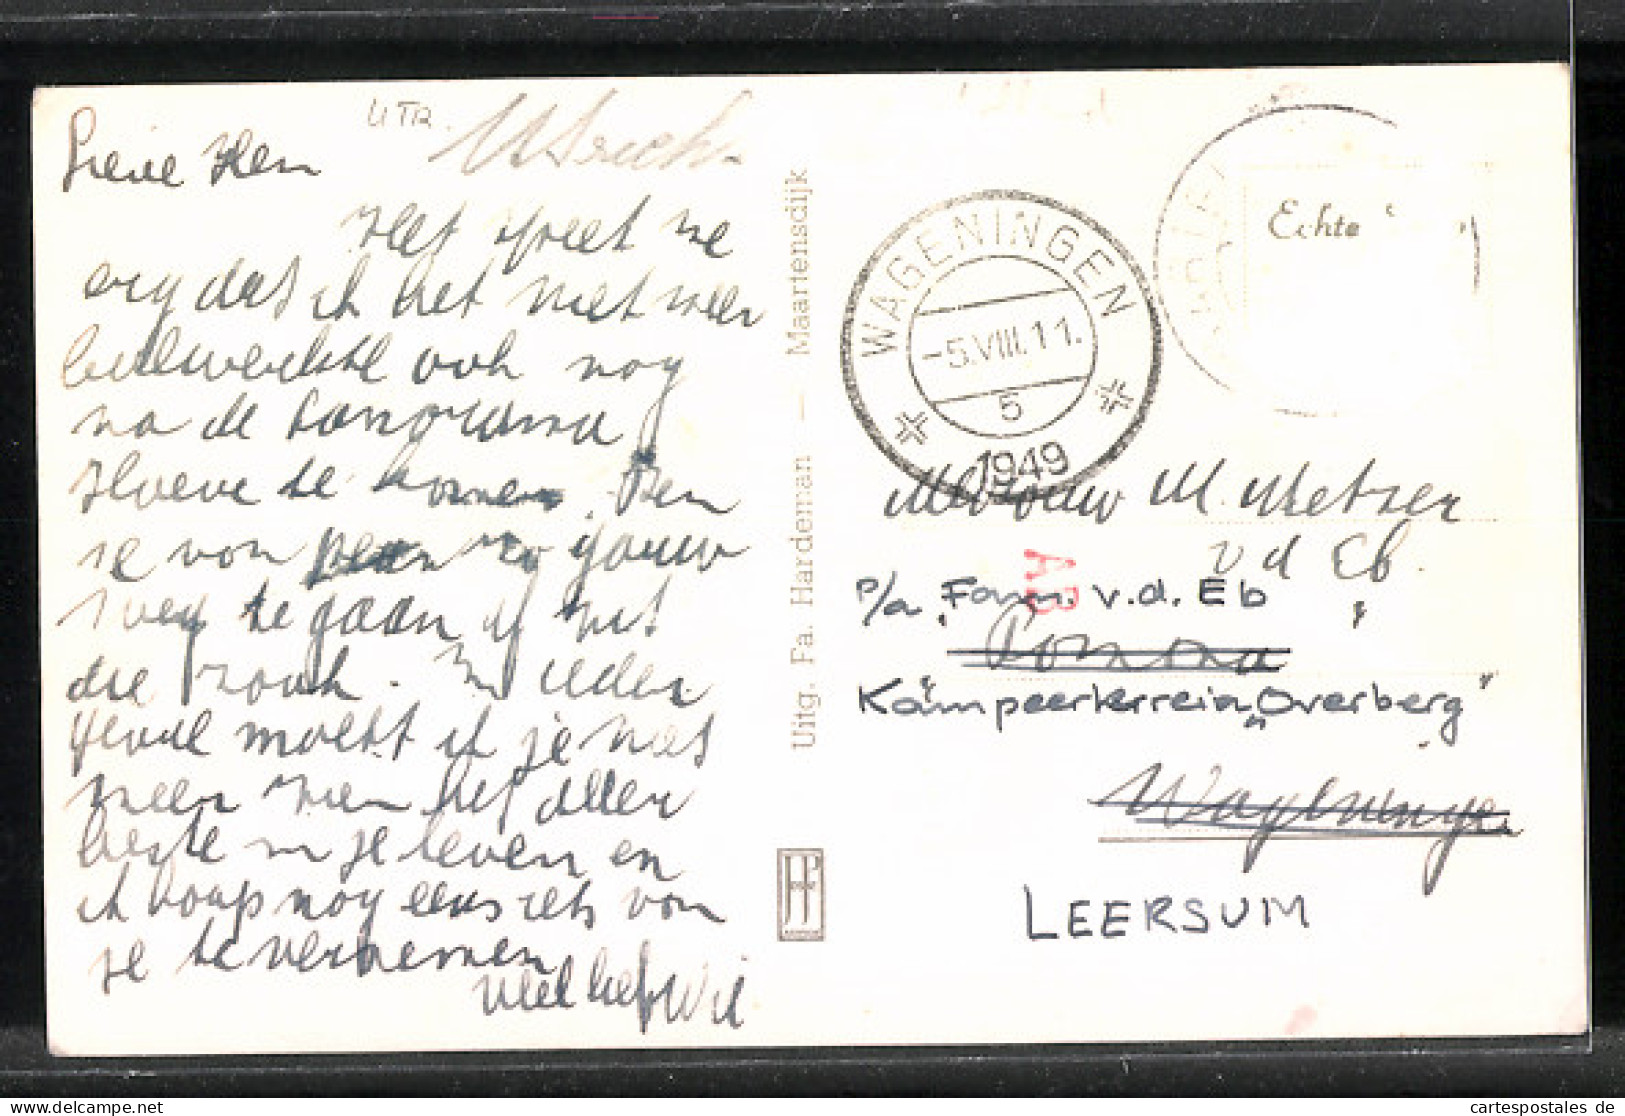 UTR. Utrecht.
Lieve Hen
Het speet me
erg dat ik het niet meer
bewerkte ook nog
na de
Hoeve te komen. Ben
je van plan zo gauw
weg te gaan of niet
die zoals. In ieder
geval moet ik je nog
meer het aller
beste in je leven en
ik hoop nog eens iets van
je te vernemen
veel liefs Wil
Uitg. Fa. Hardeman — Maartensdijk
HF
WAGENINGEN
-5.VIII.11.
5
1949
Echte
Mevrouw M. Metzer
v d Eb.
AB
p/a „Fam. v.d. Eb "
Pomona
Kampeerterrein „Overberg"
Wageningen
LEERSUM
cartespostales de